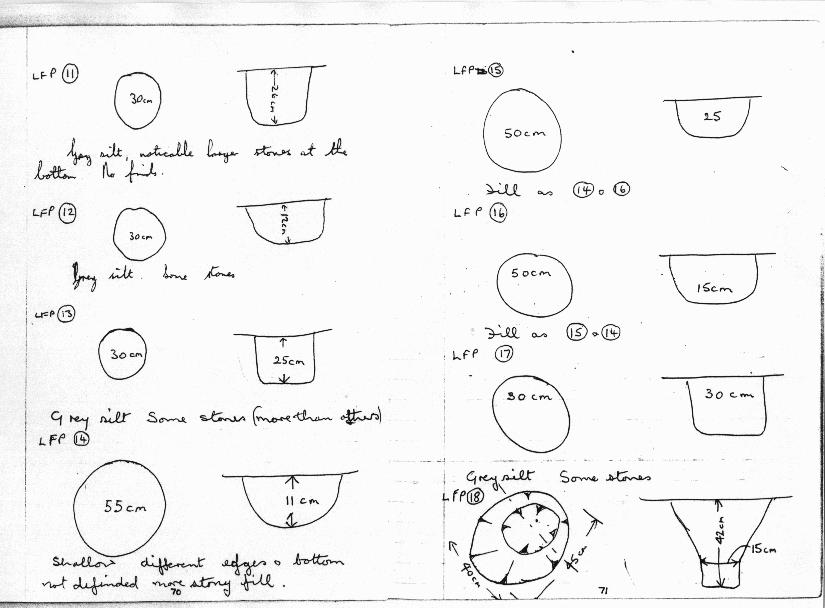 LFP 11
30cm
26cm
Grey silt, noticable larger stones at the
bottom No finds.
LFP 12
30cm
12cm
Grey silt. Some stones
LFP 13
30cm
25cm
Grey silt Some stones (more than others)
LFP 14
55cm
11 cm
Shallow different edges & bottom
not definded more stony fill.
70
LFP 15
50cm
25
Fill as 14 & 16
LFP 16
50cm
15cm
Fill as 15 & 14
LFP 17
30cm
30cm
Grey silt Some stones
LFP 18
40cm
45cm
42cm
15cm
71